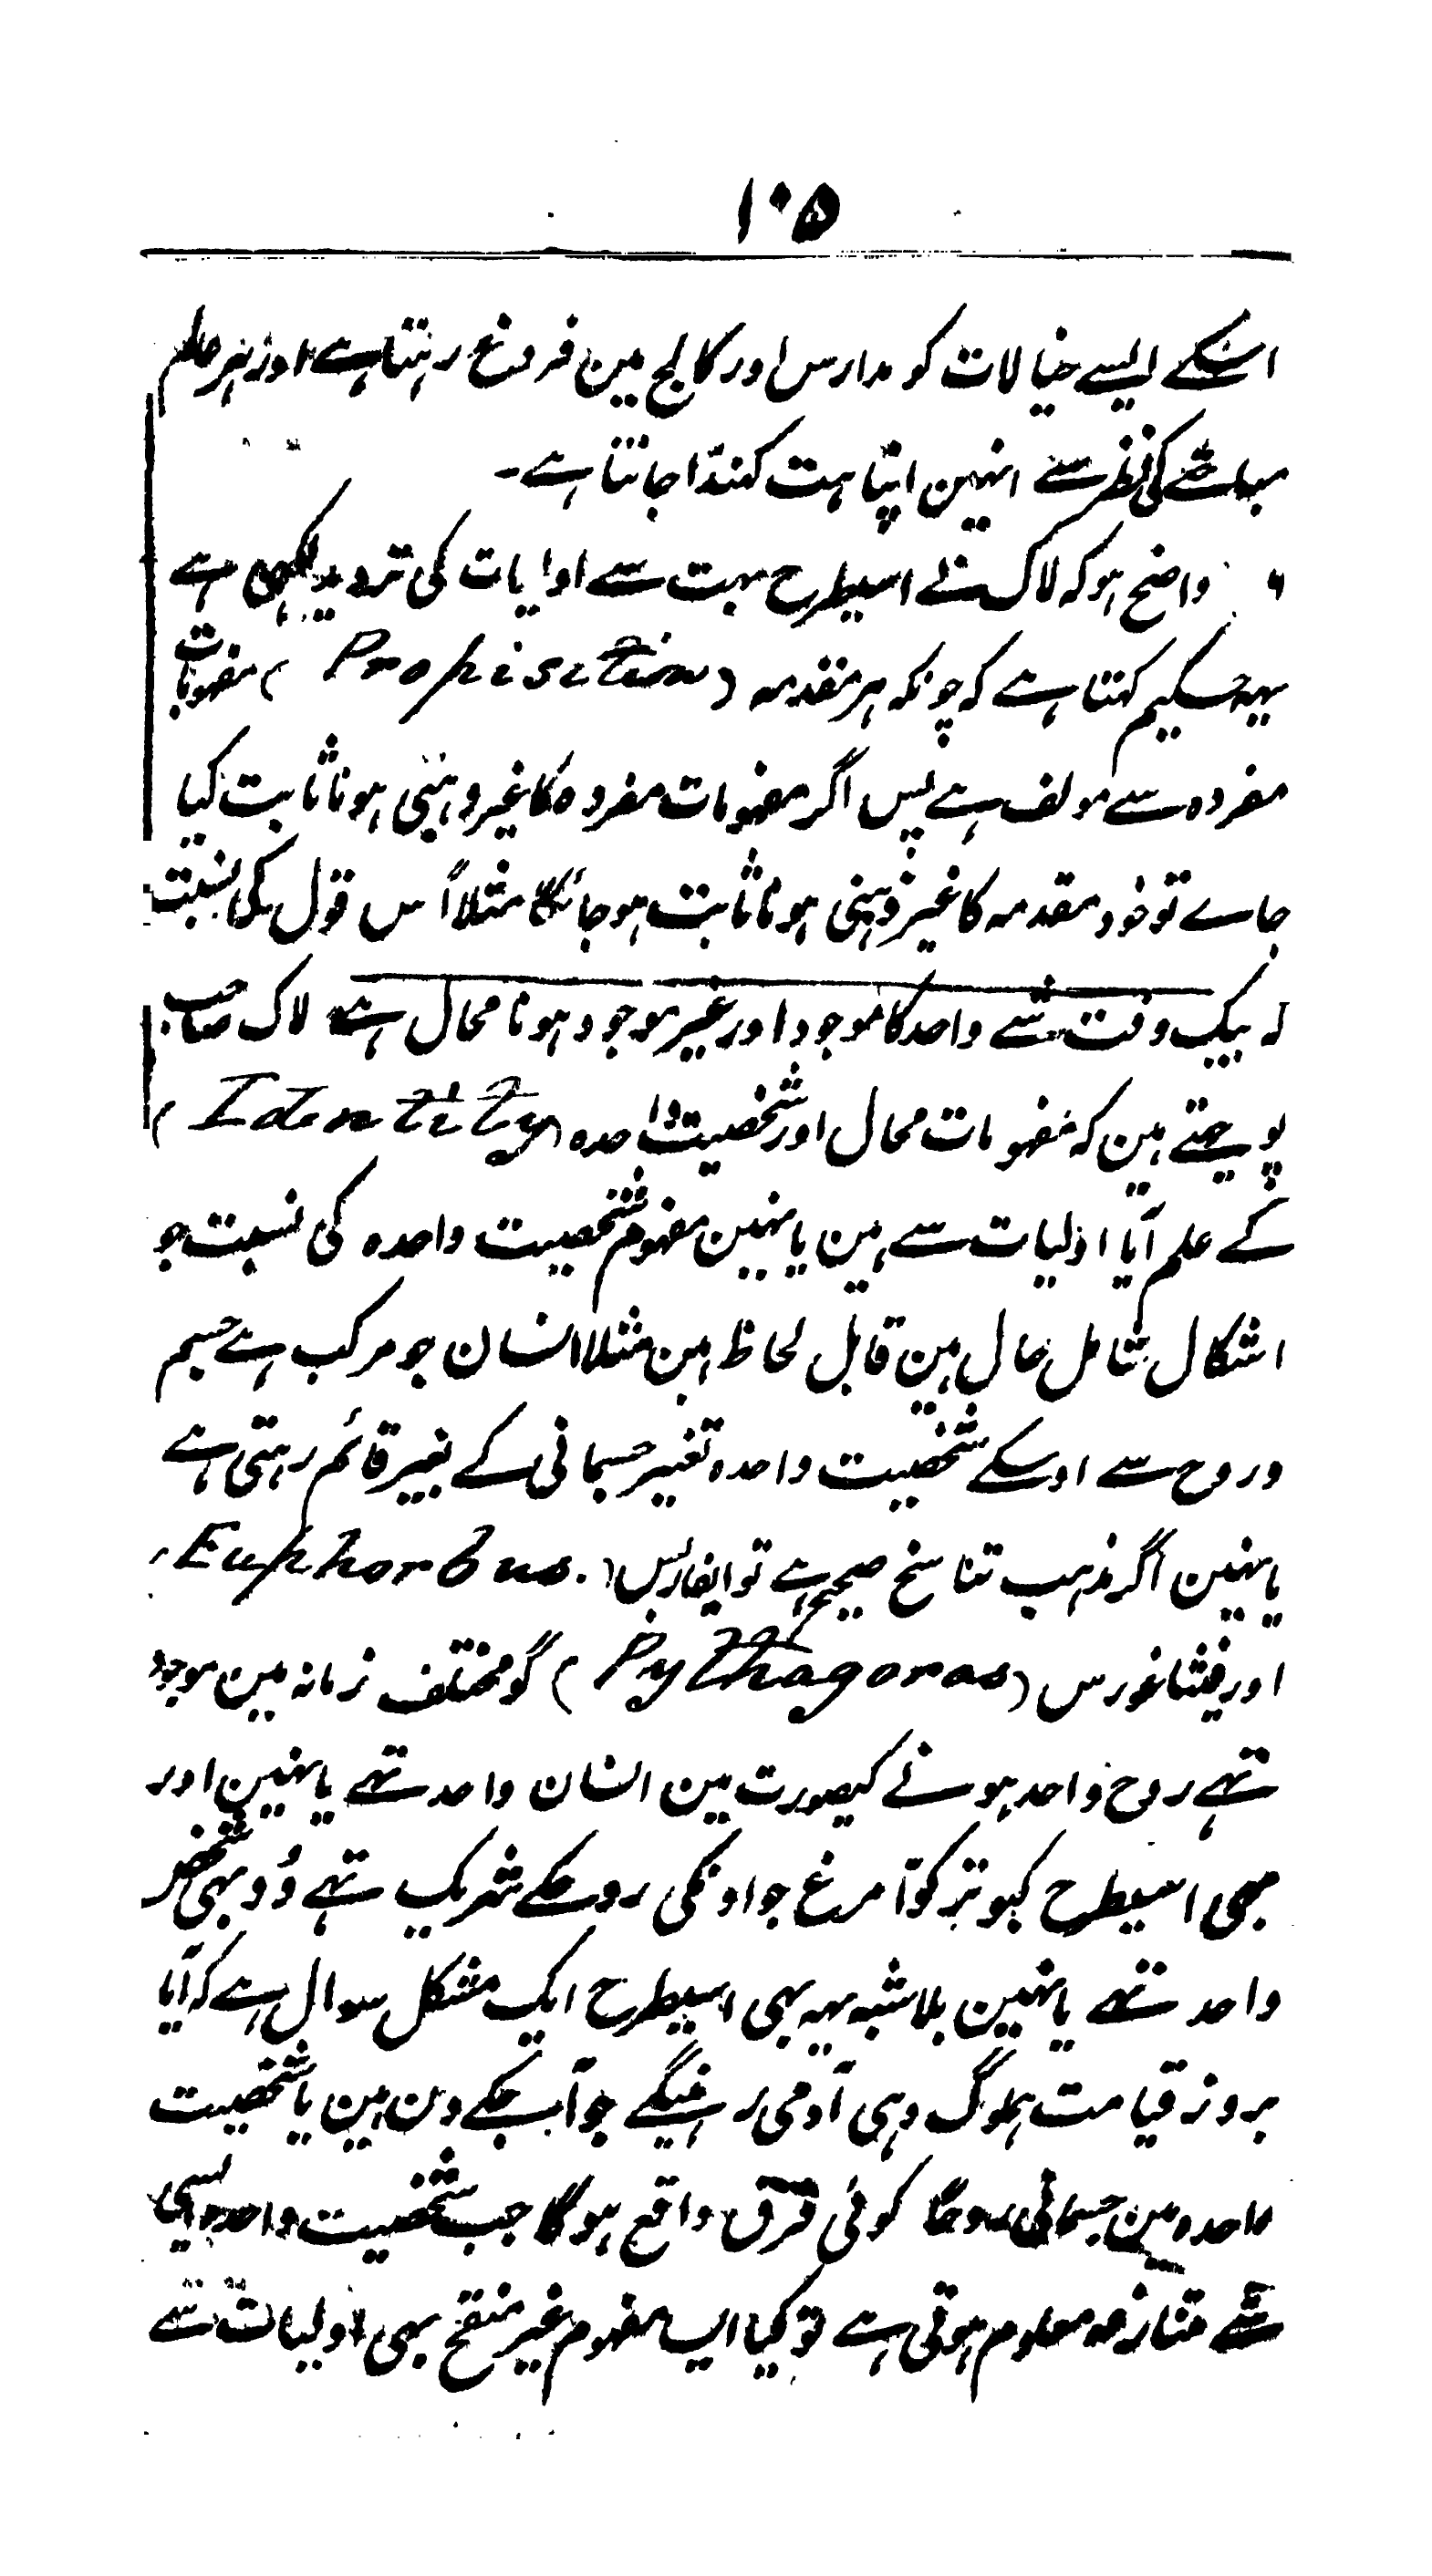 ۱۰۵
انکے ایسے خیالات کو مدارس اور کالج مین فروغ رہتا ہے اور ہر عالم
مباحثے کی نظر سے انہین اپنا ہت کنڈا جانتا ہے۔
۶ واضح ہو کہ لاک نے اسیطرح بہت سے اوایات کی تردید لکھی ہے
یہہ حکیم کہتا ہے کہ چونکہ ہر مقدمہ (Propisition) مفہومات
مفردہ سے مولف ہے پس اگر مفہومات مفردہ کا غیر وہنی ہونا ثابت کیا
جاے تو خود مقدمہ کا غیر ذہنی ہونا ثابت ہو جائیگا مثلاً اس قول کی نسبت
کہ بیک وقت شے واحد کا موجود اور غیر موجود ہونا محال ہے لاک صاحب
پوچھتے ہین کہ مفہومات محال اور شخصیت واحدہ (Identity)
کے علم آیا اذلیات سے ہین یا نہین مفہوم شخصیت واحدہ کی نسبت جو
اشکال شامل حال ہین قابل لحاظ ہین مثلا انسان جو مرکب ہے جسم
و روح سے اوسکے شخصیت واحدہ تغییر جسمانی کے بغیر قائم رہتی ہے
یا نہین اگر مذہب تناسخ صحیح ہے تو ایفاربس (Euphorbus.
اور فیثاغورس (Pythagoras) گو مختلف زمانہ مین موجود
تہے روح واحد ہونے کیصورت مین انسان واحد تہے یا نہین اور
بہی اسیطرح کبوتر کوّا مرغ جو اونکی روحکے شریک تہے وُہ بہی شخص
واحد تہے یا نہین بلا شبہ یہہ بہی اسیطرح ایک مشکل سوال ہے کہ آیا
بروز قیامت ہملوگ وہی آدمی رہینگے جو آب جکے دن ہین یا شخصیت
واحدہ مین جسمانی روحاً کوئی فرق واقع ہوگا جب شخصیت واحدہ ایسی
شے متنازعہ معلوم ہوتی ہے تو کیا ایسا مفہوم غیر منقح بہی اولیات سے